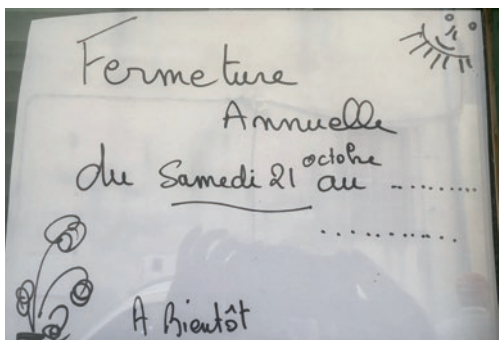 Fermeture
Annuelle
du Samedi 21 octobre au ..........
...........
A Bientôt